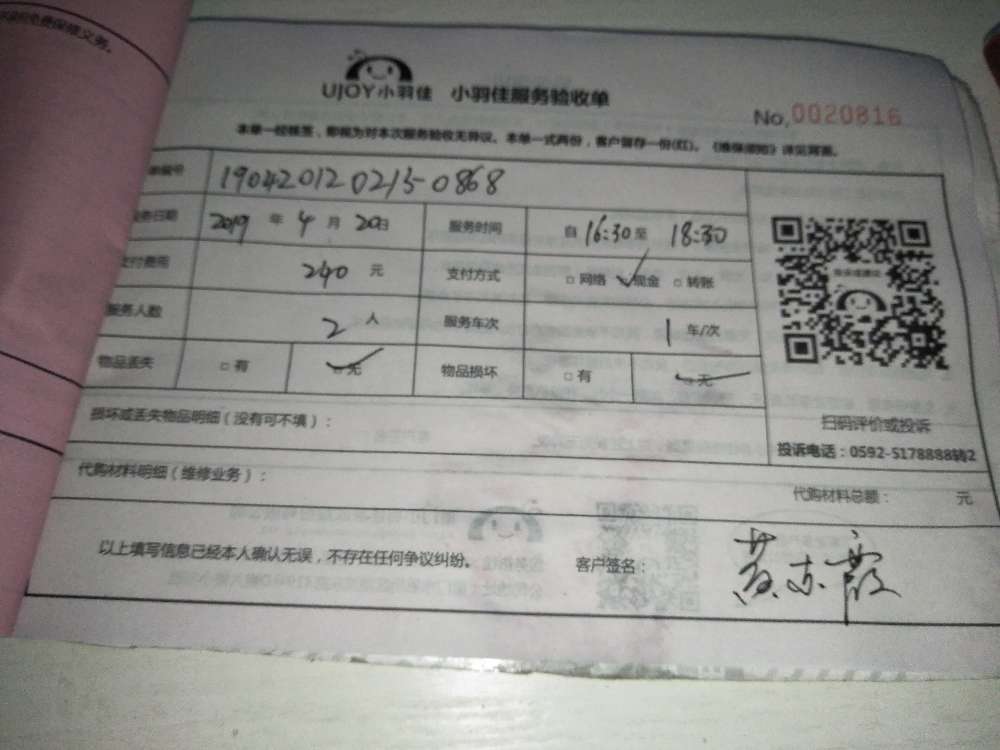 免费保修义务。
UJOY小羽佳 小羽佳服务验收单
No.0020816
本单一经核签，即视为对本次服务验收无异议。本单一式两份，客户留存一份(红)。《维保须知》详见背面。
编号 190420120215-0868
务日期 2019 年 4 月 20日 服务时间 自 16:30 至 18:30
支付费用 240 元 支付方式 □网络 ✓现金 □转账
服务人数 2 人 服务车次 1 车/次
物品丢失 □有 ✓无 物品损坏 □有 ✓无
损坏或丢失物品明细（没有可不填）：
扫码评价或投诉
投诉电话：0592-5178888转2
代购材料明细（维修业务）：
代购材料总额： 元
以上填写信息已经本人确认无误，不存在任何争议纠纷。 客户签名：黄亦霞